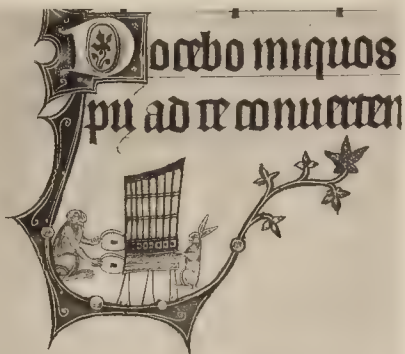 Docebo iniquos
pii ad te conuerten